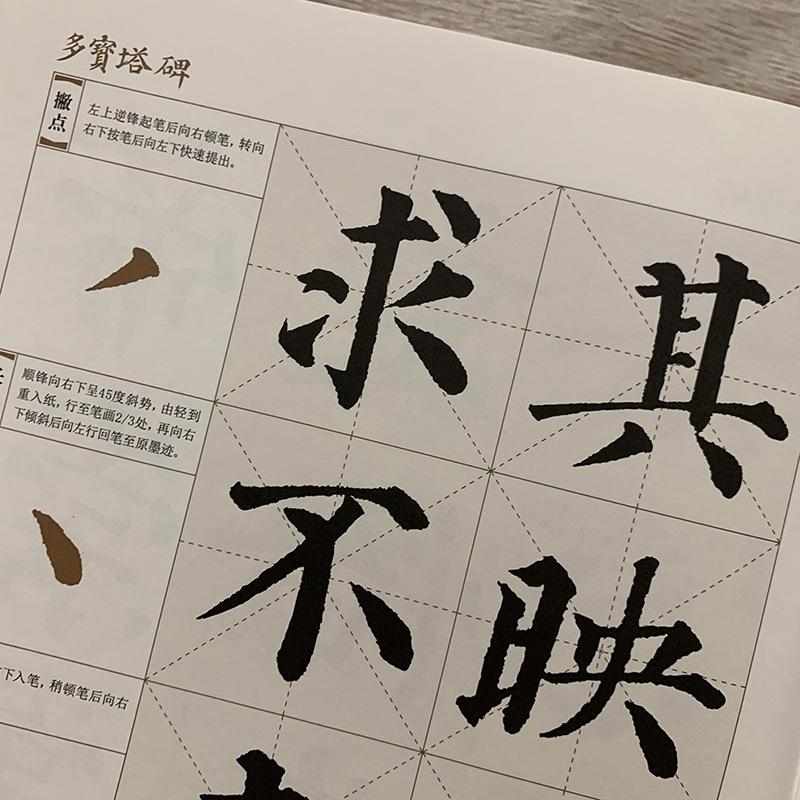 多寶塔碑
撇点
左上逆锋起笔后向右顿笔，转向
右下按笔后向左下快速提出。
求其
顺锋向右下呈45度斜势，由轻到
重入纸，行至笔画2/3处，再向右
下倾斜后向左行回笔至原墨迹。
不映
下入笔，稍顿笔后向右